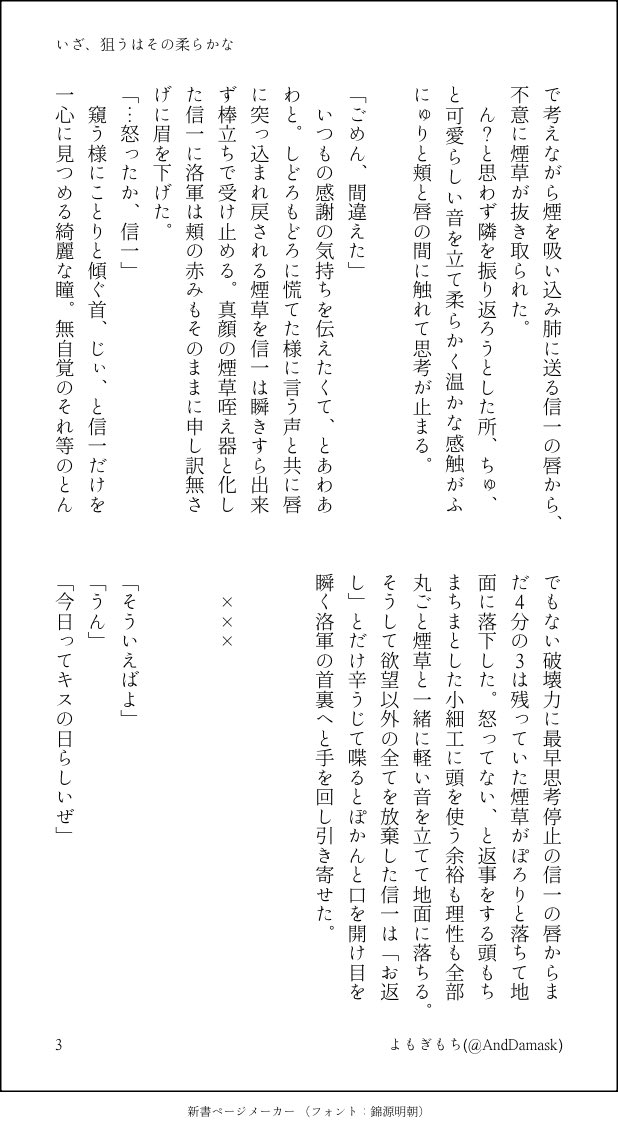 いざ、狙うはその柔らかな
で考えながら煙を吸い込み肺に送る信一の唇から、
不意に煙草が抜き取られた。
ん?と思わず隣を振り返ろうとした所、ちゅ、
と可愛らしい音を立て柔らかく温かな感触がふ
にゅりと頬と唇の間に触れて思考が止まる。
「ごめん、間違えた」
いつもの感謝の気持ちを伝えたくて、とあわあ
わと。しどろもどろに慌てた様に言う声と共に唇
に突っ込まれ戻される煙草を信一は瞬きすら出来
ず棒立ちで受け止める。真顔の煙草咥え器と化し
た信一に洛軍は頬の赤みもそのままに申し訳無さ
げに眉を下げた。
「…怒ったか、信一」
窺う様にことりと傾ぐ首、じぃ、と信一だけを
一心に見つめる綺麗な瞳。無自覚のそれ等のとん
でもない破壊力に最早思考停止の信一の唇からま
だ4分の3は残っていた煙草がぽろりと落ちて地
面に落下した。怒ってない、と返事をする頭もち
まちまとした小細工に頭を使う余裕も理性も全部
丸ごと煙草と一緒に軽い音を立てて地面に落ちる。
そうして欲望以外の全てを放棄した信一は「お返
し」とだけ辛うじて喋るとぽかんと口を開け目を
瞬く洛軍の首裏へと手を回し引き寄せた。
×××
「そういえばよ」
「うん」
「今日ってキスの日らしいぜ」
3
よもぎもち(@AndDamask)
新書ページメーカー (フォント:錦源明朝)